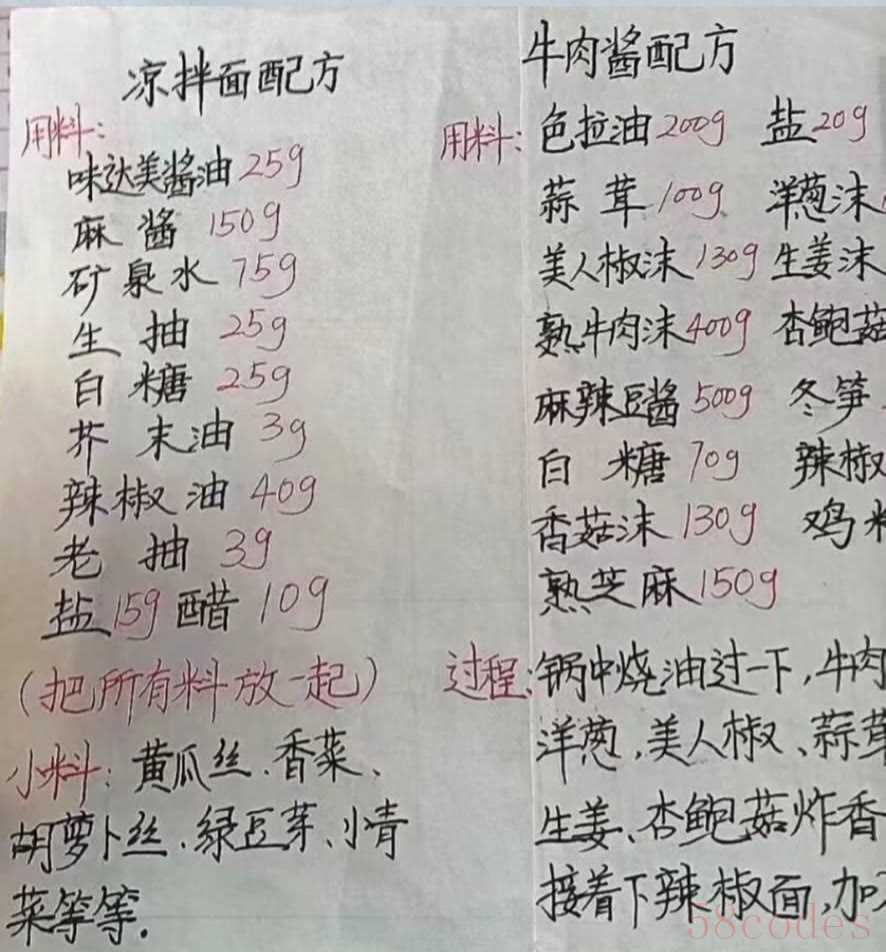 凉拌面配方
用料:
味达美酱油 25g
麻酱 150g
矿泉水 75g
生抽 25g
白糖 25g
芥末油 3g
辣椒油 40g
老抽 3g
盐 15g 醋 10g
(把所有料放一起)
小料: 黄瓜丝、香菜、
胡萝卜丝、绿豆芽、小青
菜等等.
牛肉酱配方
用料: 色拉油 200g 盐 20g
蒜茸 100g 洋葱沫
美人椒沫 130g 生姜沫
熟牛肉沫 400g 杏鲍菇
麻辣豆酱 500g 冬笋
白糖 70g 辣椒
香菇沫 130g 鸡
熟芝麻 150g
过程: 锅中烧油过一下,牛肉
洋葱、美人椒、蒜茸
生姜、杏鲍菇炸香
接着下辣椒面,加
58codes